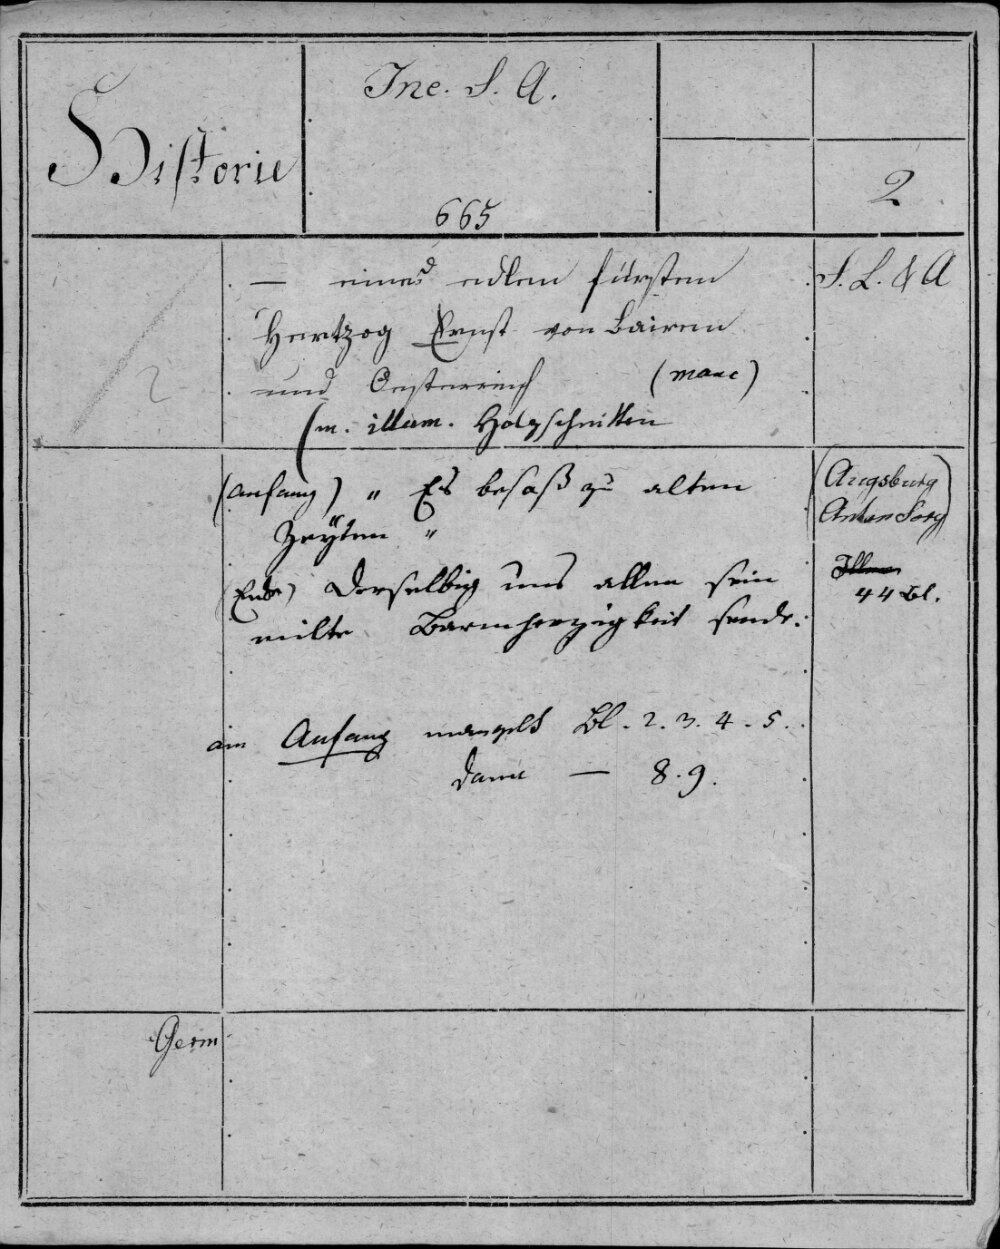 Inc. S. A.
Historie
2
665
— eines edlen fürsten
S. L. & A
Hertzog Ernst von Bairen
und Oesterreich (manc)
2
(m. illum. Holzschnitten
(Anfang) „ Es besaß zu alten
(Augsburg
Zeyten "
Anton Sorg)
(Ende) Derselbig uns allen sein
44 Bl.
milte Barmherzigkeit sende.
am Anfang mangelt Bl. 2. 3. 4. 5.
dann — 8. 9.
Germ